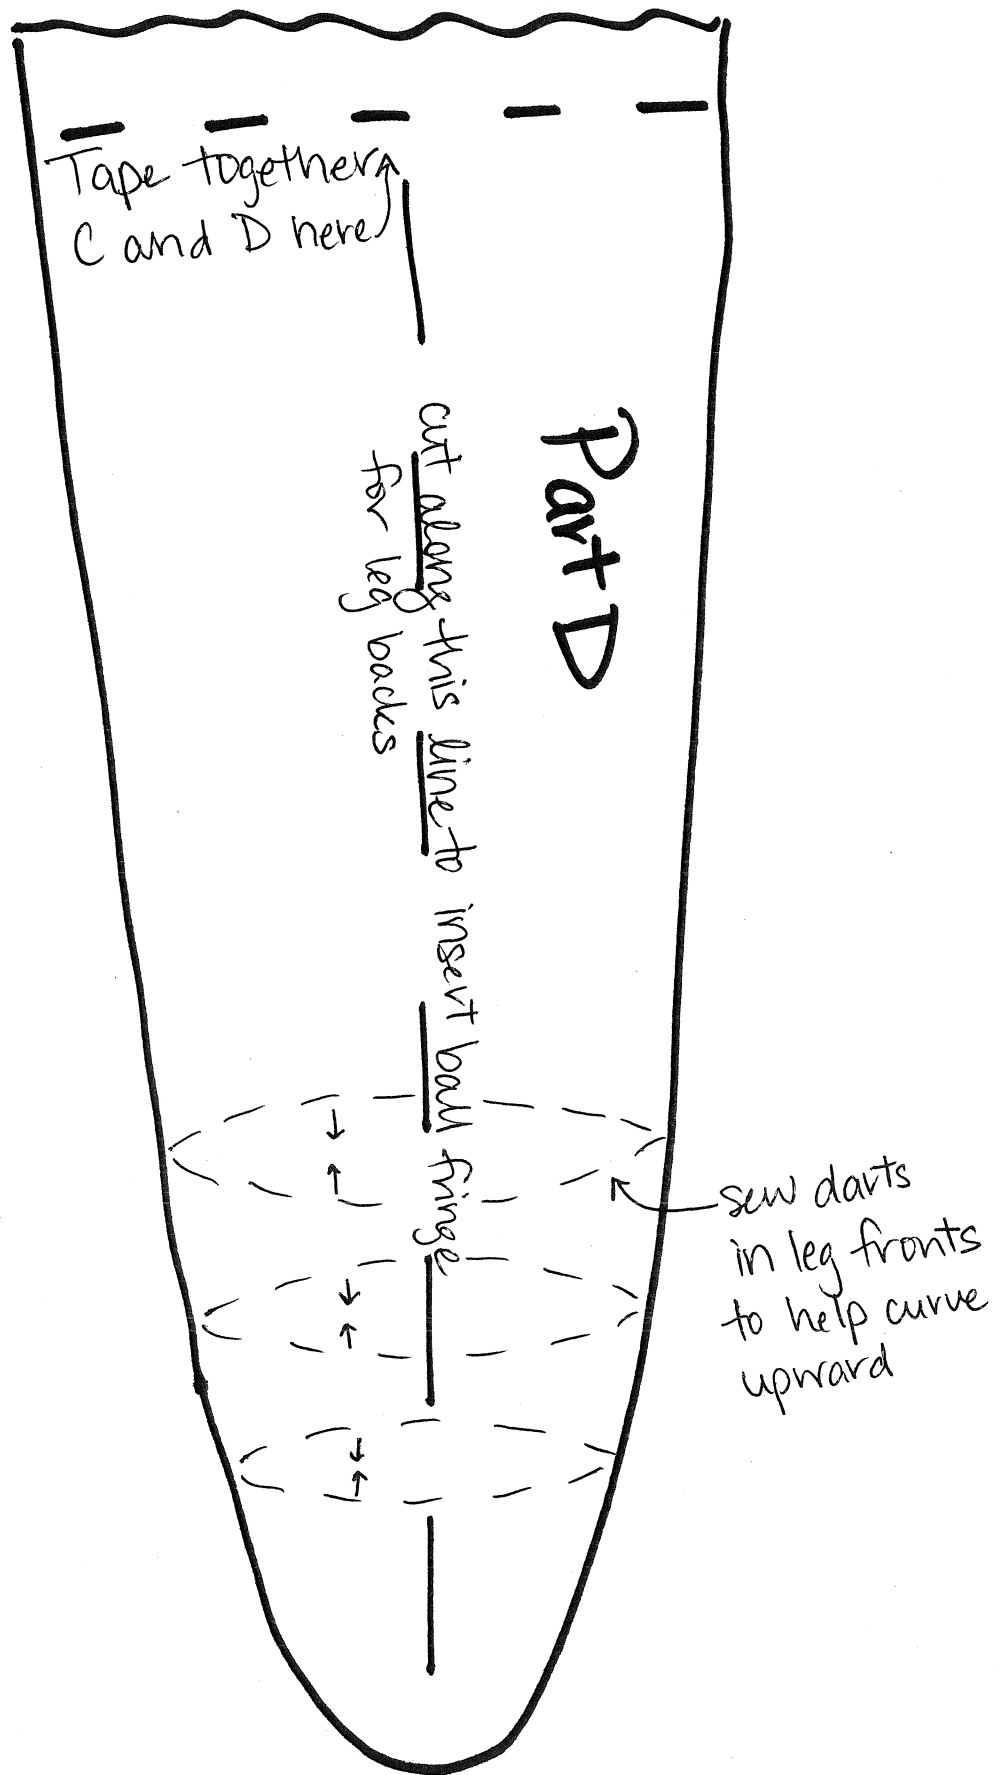 Tape together
C and D here
Part D
cut along this line to insert ball fringe
for leg backs
sew darts
in leg fronts
to help curve
upward